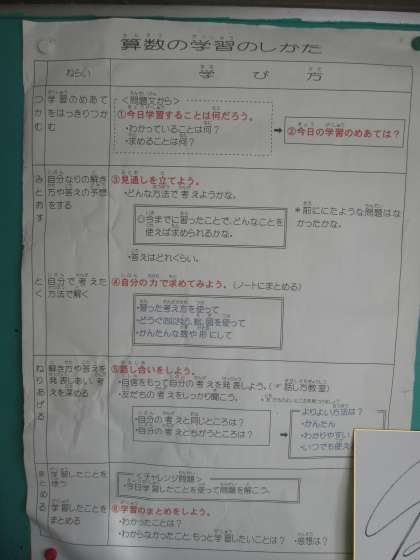 算数の学習のしかた
ねらい
学び方
つかむ
学習のめあて
をはっきりつか
む
＜問題文から＞
①今日学習することは何だろう。
・わかっていることは何？
・求めることは何？
➡
②今日の学習のめあては？
みとおす
自分なりの解き
方や答えの予想
をする
③見通しを立てよう。
・どんな方法で考えようかな。
◎今までに習ったことで、どんなことを
使えば求められるかな。
・答えはどれくらい。
＊前ににたような問題はな
かったかな。
とく
自分で考えた
方法で解く
④自分の力で求めてみよう。（ノートにまとめる）
・習った考え方を使って
・かんたんな数や形にして
ねりあげる
解き方や答えを
発表しあい考
えを深める
⑤話し合いをしよう。
・自信をもって自分の考えを発表しよう。（☞話し方教室）
・友だちの考えをしっかり聞こう。
・自分の考えと同じところは？
・自分の考えとちがうところは？
➡
よりよい方法は？
・かんたん
・わかりやすい
・いつでも使え
まとめる
学習したことを
使う
学習したことを
まとめる
＜チャレンジ問題＞
・今日学習したことを使って問題を解こう。
⑥学習のまとめをしよう。
・わかったことは？
・わからなかったこと、もっと学習したいことは？ ・感想は？